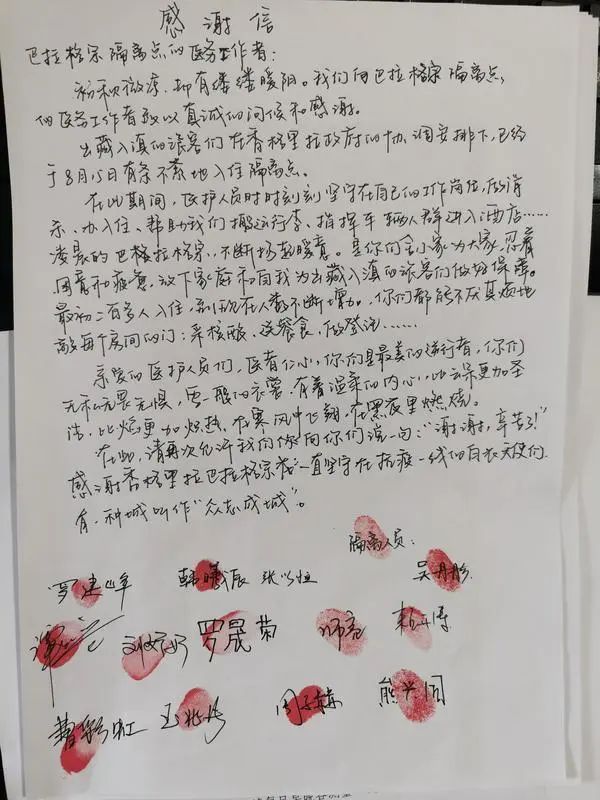 感谢信
巴拉格宗隔离点的医务工作者：
初秋微凉，却有缕缕暖阳。我们向巴拉格宗隔离点
的医务工作者致以真诚的问候和感谢。
出藏入滇的旅客们在香格里拉政府的协调安排下，已经
于8月15日有条不紊地入住隔离点。
在此期间，医护人员时时刻刻坚守在自己的工作岗位，做消
杀、办入住、帮助我们搬运行李、指挥车辆人群进入酒店……
凌晨的巴格拉格宗，不断扬起暖意。是你们舍小家为大家，忍着
困意和疲惫，放下家庭和自我为出藏入滇的旅客们做好保障。
最初二百多人入住，到现在人数不断增加，你们都能不厌其烦地
敲每个房间的门：采核酸、送餐食、做登记……
亲爱的医护人员们，医者仁心，你们是最美的逆行者，你们
无私无畏无惧，雪一般的衣裳，有着温柔的内心，比云朵更加圣
洁，比火焰更加炽热，在寒风中飞翔，在黑夜里燃烧。
在此，请再次允许我们向你们说一句：“谢谢，辛苦了！”
感谢香格里拉巴拉格宗一直坚守在抗疫一线的白衣天使们.
有一种城叫作“众志成城”。
隔离人员：
罗建 韩曦辰 张 恒 吴丹彤
刘 罗晟荣 师亮 博
曹彩虹 王 周 熊